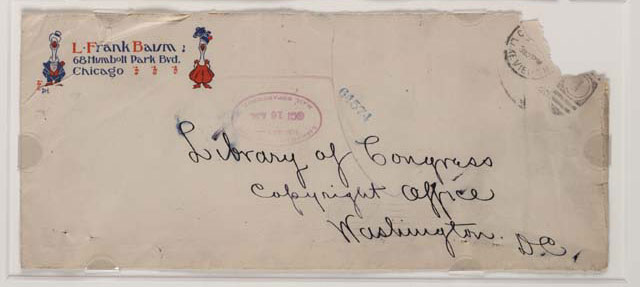 L. Frank Baum ;
68 Humbolt Park Bvd.
Chicago
OCT 16
61574
Library of Congress
Copyright Office
Washington.
D.C.